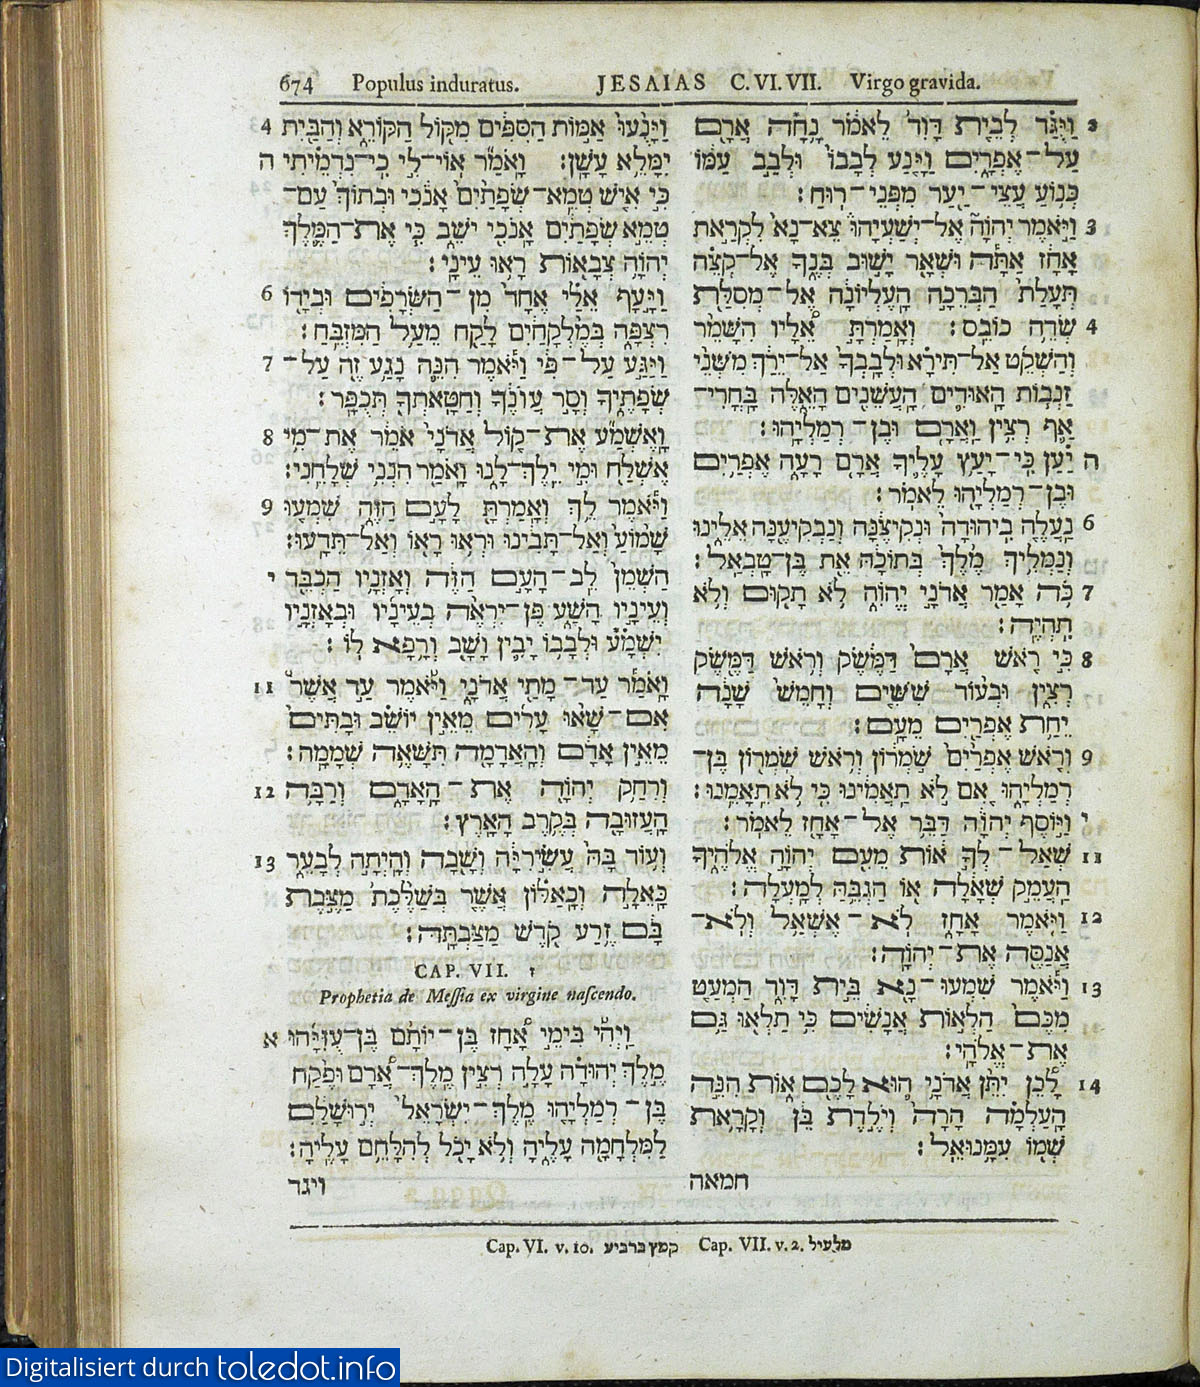 674 Populus induratus. JESAIAS C. VI. VII. Virgo gravida.
וַיָּנֻעוּ אַמּוֹת הַסִּפִּים מִקּוֹל הַקּוֹרֵא וְהַבַּיִת 4
יִמָּלֵא עָשָׁן׃ וָאֹמַר אוֹי־לִי כִי־נִדְמֵיתִי ה
כִּי אִישׁ טְמֵא־שְׂפָתַיִם אָנֹכִי וּבְתוֹךְ עַם־
טְמֵא שְׂפָתַיִם אָנֹכִי יֹשֵׁב כִּי אֶת־הַמֶּלֶךְ
יְהוָֹה צְבָאוֹת רָאוּ עֵינָי׃
וַיָּעָף אֵלַי אֶחָד מִן־הַשְּׂרָפִים וּבְיָדוֹ 6
רִצְפָּה בְּמֶלְקָחַיִם לָקַח מֵעַל הַמִּזְבֵּחַ׃
וַיַּגַּע עַל־פִּי וַיֹּאמֶר הִנֵּה נָגַע זֶה עַל־ 7
שְׂפָתֶיךָ וְסָר עֲוֹנֶךָ וְחַטָּאתְךָ תְּכֻפָּר׃
וָאֶשְׁמַע אֶת־קוֹל אֲדֹנָי אֹמֵר אֶת־מִי 8
אֶשְׁלַח וּמִי יֵלֶךְ־לָנוּ וָאֹמַר הִנְנִי שְׁלָחֵנִי׃
וַיֹּאמֶר לֵךְ וְאָמַרְתָּ לָעָם הַזֶּה שִׁמְעוּ 9
שָׁמוֹעַ וְאַל־תָּבִינוּ וּרְאוּ רָאוֹ וְאַל־תֵּדָעוּ׃
הַשְׁמֵן לֵב־הָעָם הַזֶּה וְאָזְנָיו הַכְבֵּד י
וְעֵינָיו הָשַׁע פֶּן־יִרְאֶה בְעֵינָיו וּבְאָזְנָיו
יִשְׁמָע וּלְבָבוֹ יָבִין וָשָׁב וְרָפָא לוֹ׃
וָאֹמַר עַד־מָתַי אֲדֹנָי וַיֹּאמֶר עַד אֲשֶׁר 11
אִם־שָׁאוּ עָרִים מֵאֵין יוֹשֵׁב וּבָתִּים
מֵאֵין אָדָם וְהָאֲדָמָה תִּשָּׁאֶה שְׁמָמָה׃
וְרִחַק יְהוָֹה אֶת־הָאָדָם וְרַבָּה 12
הָעֲזוּבָה בְּקֶרֶב הָאָרֶץ׃
וְעוֹד בָּהּ עֲשִׂירִיָּה וְשָׁבָה וְהָיְתָה לְבָעֵר 13
כָּאֵלָה וְכָאַלּוֹן אֲשֶׁר בְּשַׁלֶּכֶת מַצֶּבֶת
בָּם זֶרַע קֹדֶשׁ מַצַּבְתָּהּ׃
CAP. VII. ז
Prophetia de Messia ex virgine nascendo.
וַיְהִי בִּימֵי אָחָז בֶּן־יוֹתָם בֶּן־עֻזִּיָּהוּ א
מֶלֶךְ יְהוּדָה עָלָה רְצִין מֶלֶךְ־אֲרָם וּפֶקַח
בֶּן־רְמַלְיָהוּ מֶלֶךְ־יִשְׂרָאֵל יְרוּשָׁלִַם
לַמִּלְחָמָה עָלֶיהָ וְלֹא יָכֹל לְהִלָּחֵם עָלֶיהָ׃
ויגד
2 וַיֻּגַּד לְבֵית דָּוִד לֵאמֹר נָחָה אֲרָם
עַל־אֶפְרָיִם וַיָּנַע לְבָבוֹ וּלְבַב עַמּוֹ
כְּנוֹעַ עֲצֵי־יַעַר מִפְּנֵי־רוּחַ׃
3 וַיֹּאמֶר יְהוָֹה אֶל־יְשַׁעְיָהוּ צֵא־נָא לִקְרַאת
אָחָז אַתָּה וּשְׁאָר יָשׁוּב בְּנֶךָ אֶל־קְצֵה
תְּעָלַת הַבְּרֵכָה הָעֶלְיוֹנָה אֶל־מְסִלַּת
4 שְׂדֵה כוֹבֵס׃ וְאָמַרְתָּ אֵלָיו הִשָּׁמֵר
וְהַשְׁקֵט אַל־תִּירָא וּלְבָבְךָ אַל־יֵרַךְ מִשְּׁנֵי
זַנְבוֹת הָאוּדִים הָעֲשֵׁנִים הָאֵלֶּה בָּחֳרִי־
אַף רְצִין וַאֲרָם וּבֶן־רְמַלְיָהוּ׃
ה יַעַן כִּי־יָעַץ עָלֶיךָ אֲרָם רָעָה אֶפְרַיִם
וּבֶן־רְמַלְיָהוּ לֵאמֹר׃
6 נַעֲלֶה בִיהוּדָה וּנְקִיצֶנָּה וְנַבְקִיעֶנָּה אֵלֵינוּ
וְנַמְלִיךְ מֶלֶךְ בְּתוֹכָהּ אֵת בֶּן־טָבְאַל׃
7 כֹּה אָמַר אֲדֹנָי יֱהוִֹה לֹא תָקוּם וְלֹא
תִהְיֶה׃
8 כִּי רֹאשׁ אֲרָם דַּמֶּשֶׂק וְרֹאשׁ דַּמֶּשֶׂק
רְצִין וּבְעוֹד שִׁשִּׁים וְחָמֵשׁ שָׁנָה
יֵחַת אֶפְרַיִם מֵעָם׃
9 וְרֹאשׁ אֶפְרַיִם שֹׁמְרוֹן וְרֹאשׁ שֹׁמְרוֹן בֶּן־
רְמַלְיָהוּ אִם לֹא תַאֲמִינוּ כִּי לֹא תֵאָמֵנוּ׃
י וַיּוֹסֶף יְהוָֹה דַּבֵּר אֶל־אָחָז לֵאמֹר׃
11 שְׁאַל־לְךָ אוֹת מֵעִם יְהוָֹה אֱלֹהֶיךָ
הַעְמֵק שְׁאָלָה אוֹ הַגְבֵּהַּ לְמָעְלָה׃
12 וַיֹּאמֶר אָחָז לֹא־אֶשְׁאַל וְלֹא־
אֲנַסֶּה אֶת־יְהוָֹה׃
13 וַיֹּאמֶר שִׁמְעוּ־נָא בֵּית דָּוִד הַמְעַט
מִכֶּם הַלְאוֹת אֲנָשִׁים כִּי תַלְאוּ גַּם
אֶת־אֱלֹהָי׃
14 לָכֵן יִתֵּן אֲדֹנָי הוּא לָכֶם אוֹת הִנֵּה
הָעַלְמָה הָרָה וְיֹלֶדֶת בֵּן וְקָרָאת
שְׁמוֹ עִמָּנוּאֵל׃
חמאה
Cap. VI. v. 10. קמץ ברביע Cap. VII. v. 2. מלעיל
Digitalisiert durch toledot.info